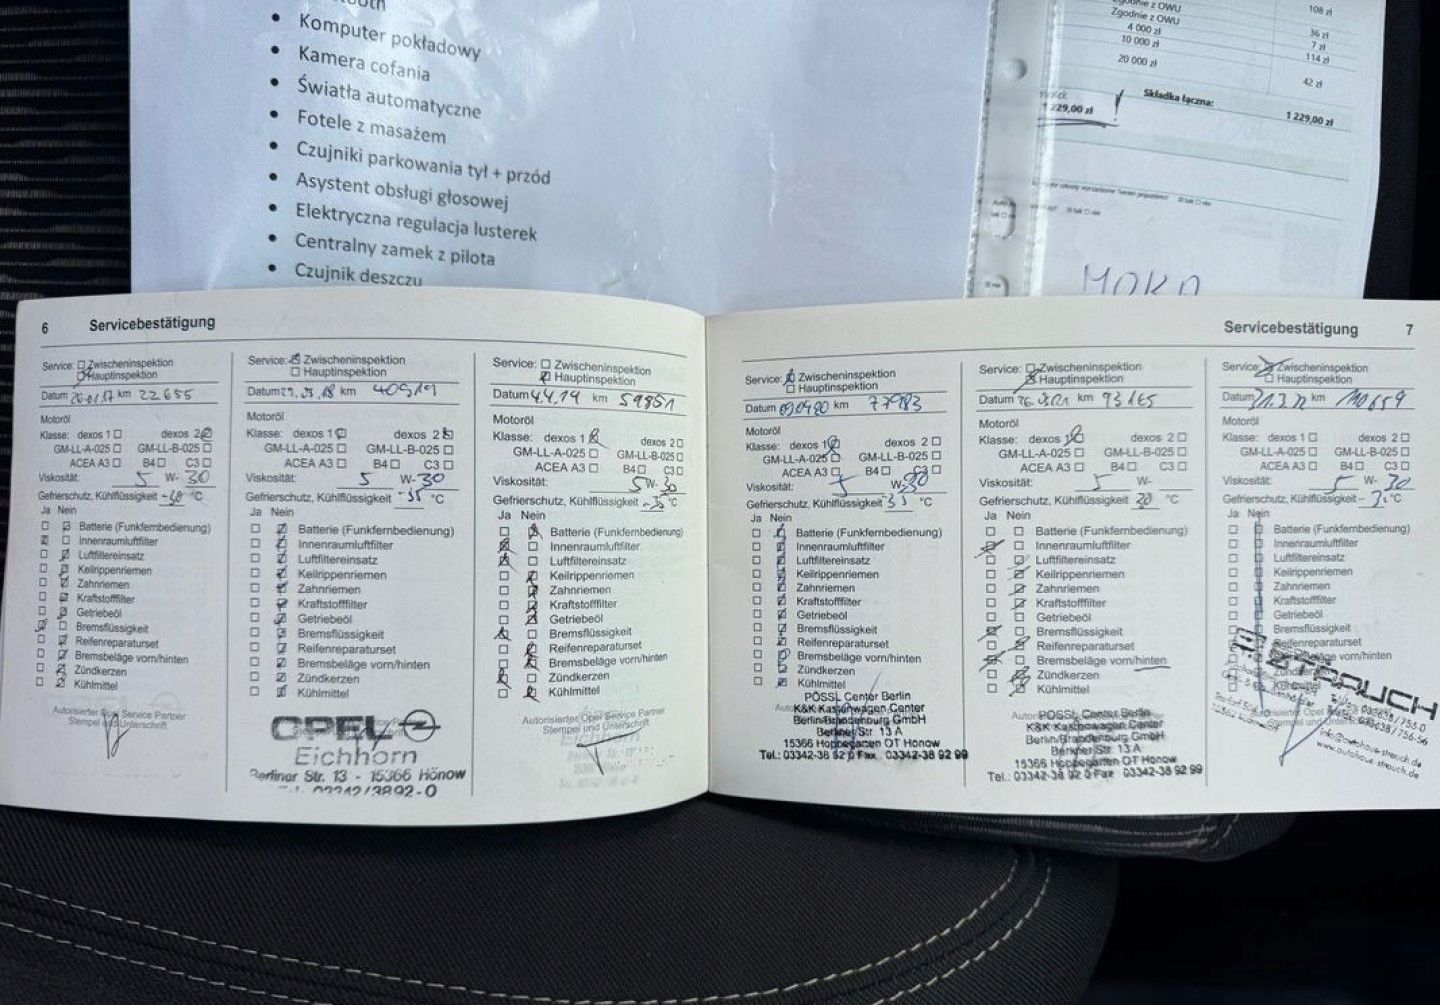 Komputer pokładowy
Kamera cofania
Światła automatyczne
Fotele z masażem
Czujniki parkowania tył + przód
Asystent obsługi głosowej
Elektryczna regulacja lusterek
Centralny zamek z pilota
Czujnik deszczu
108 zł
Zgodnie z OWU
36 zł
4 000 zł
7 zł
10 000 zł
114 zł
20 000 zł
42 zł
Składka łączna:
1 229,00 zł
MOKA
6 Servicebestätigung
Service: Zwischeninspektion
Hauptinspektion
Datum km 22655
Motoröl
Klasse: dexos 1 dexos 2
GM-LL-A-025 GM-LL-B-025
ACEA A3 B4 C3
Viskosität: 5 W- 30
Gefrierschutz, Kühlflüssigkeit °C
Ja Nein
Batterie (Funkfernbedienung)
Innenraumluftfilter
Luftfiltereinsatz
Keilrippenriemen
Zahnriemen
Kraftstofffilter
Getriebeöl
Bremsflüssigkeit
Reifenreparaturset
Bremsbeläge vorn/hinten
Zündkerzen
Kühlmittel
Autorisierter Opel Service Partner
Stempel und Unterschrift
Service: Zwischeninspektion
Hauptinspektion
Datum km 40919
Motoröl
Klasse: dexos 1 dexos 2
GM-LL-A-025 GM-LL-B-025
ACEA A3 B4 C3
Viskosität: 5 W- 30
Gefrierschutz, Kühlflüssigkeit -35 °C
Ja Nein
Batterie (Funkfernbedienung)
Innenraumluftfilter
Luftfiltereinsatz
Keilrippenriemen
Zahnriemen
Kraftstofffilter
Getriebeöl
Bremsflüssigkeit
Reifenreparaturset
Bremsbeläge vorn/hinten
Zündkerzen
Kühlmittel
OPEL
Eichhorn
Berliner Str. 13 - 15366 Hönow
Tel. 03342/3892-0
Service: Zwischeninspektion
Hauptinspektion
Datum 4.4.19 km 59851
Motoröl
Klasse: dexos 1 dexos 2
GM-LL-A-025 GM-LL-B-025
ACEA A3 B4 C3
Viskosität: 5 W- 30
Gefrierschutz, Kühlflüssigkeit °C
Ja Nein
Batterie (Funkfernbedienung)
Innenraumluftfilter
Luftfiltereinsatz
Keilrippenriemen
Zahnriemen
Kraftstofffilter
Getriebeöl
Bremsflüssigkeit
Reifenreparaturset
Bremsbeläge vorn/hinten
Zündkerzen
Kühlmittel
Autorisierter Opel Service Partner
Stempel und Unterschrift
Servicebestätigung 7
Service: Zwischeninspektion
Hauptinspektion
Datum km 77983
Motoröl
Klasse: dexos 1 dexos 2
GM-LL-A-025 GM-LL-B-025
ACEA A3 B4 C3
Viskosität: 5 W- 30
Gefrierschutz, Kühlflüssigkeit °C
Ja Nein
Batterie (Funkfernbedienung)
Innenraumluftfilter
Luftfiltereinsatz
Keilrippenriemen
Zahnriemen
Kraftstofffilter
Getriebeöl
Bremsflüssigkeit
Reifenreparaturset
Bremsbeläge vorn/hinten
Zündkerzen
Kühlmittel
PÖSSL Center Berlin
K&K Kastenwagen Center
Berlin/Brandenburg GmbH
Berliner Str. 13 A
15366 Hoppegarten OT Hönow
Tel.: 03342-38 92 0 Fax 03342-38 92 99
Service: Zwischeninspektion
Hauptinspektion
Datum km 93165
Motoröl
Klasse: dexos 1 dexos 2
GM-LL-A-025 GM-LL-B-025
ACEA A3 B4 C3
Viskosität: 5 W-
Gefrierschutz, Kühlflüssigkeit °C
Ja Nein
Batterie (Funkfernbedienung)
Innenraumluftfilter
Luftfiltereinsatz
Keilrippenriemen
Zahnriemen
Kraftstofffilter
Getriebeöl
Bremsflüssigkeit
Reifenreparaturset
Bremsbeläge vorn/hinten
Zündkerzen
Kühlmittel
PÖSSL Center Berlin
K&K Kastenwagen Center
Berlin/Brandenburg GmbH
Berliner Str. 13 A
15366 Hoppegarten OT Hönow
Tel.: 03342-38 92 0 Fax 03342-38 92 99
Service: Zwischeninspektion
Hauptinspektion
Datum 31.3.22 km 110659
Motoröl
Klasse: dexos 1 dexos 2
GM-LL-A-025 GM-LL-B-025
ACEA A3 B4 C3
Viskosität: 5 W- 30
Gefrierschutz, Kühlflüssigkeit °C
Ja Nein
Batterie (Funkfernbedienung)
Innenraumluftfilter
Luftfiltereinsatz
Keilrippenriemen
Zahnriemen
Kraftstofffilter
Getriebeöl
Bremsflüssigkeit
Reifenreparaturset
Bremsbeläge vorn/hinten
STRAUCH
info@autohaus-strauch.de
www.autohaus-strauch.de